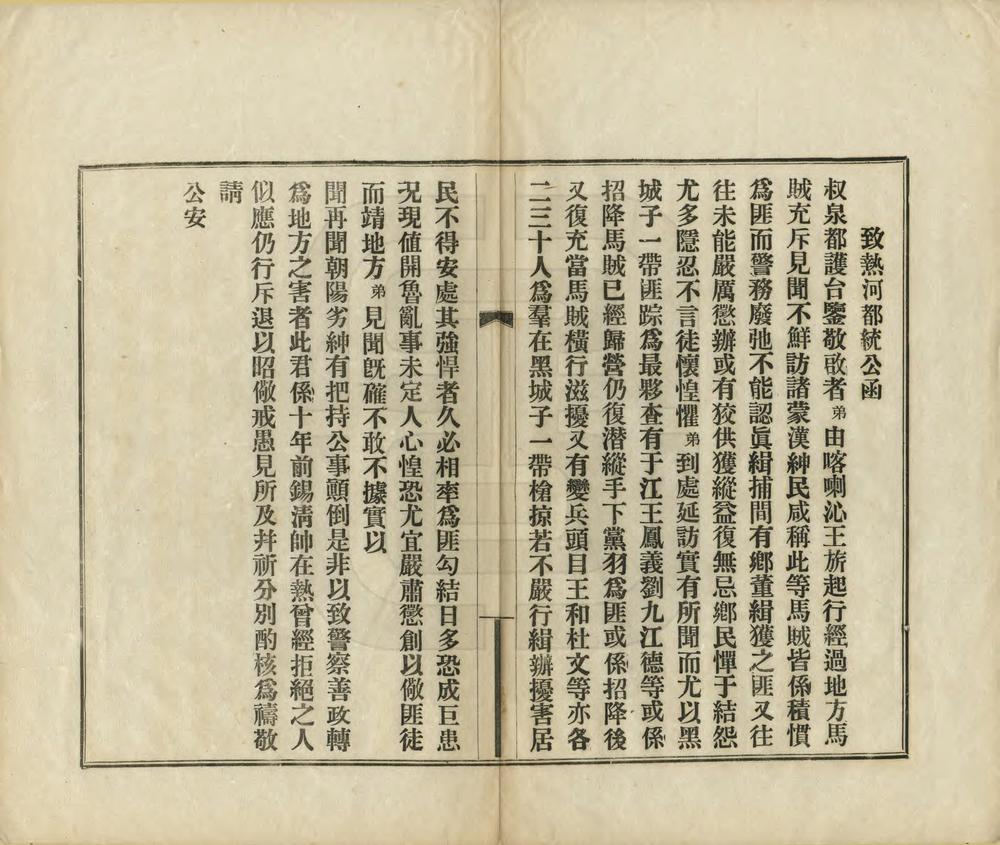 致熱河都統公函
叔泉都護台鑒敬啟者弟由喀喇沁王旂起行經過地方馬
賊充斥見聞不鮮訪諸蒙漢紳民咸稱此等馬賊皆係積慣
爲匪而警務廢弛不能認眞緝捕間有鄕董緝獲之匪又往
往未能嚴厲懲辦或有狡供獲縱益復無忌鄕民憚于結怨
尤多隱忍不言徒懷惶懼弟到處延訪實有所聞而尤以黑
城子一帶匪踪爲最夥查有于江王鳳義劉九江德等或係
招降馬賊已經歸營仍復潜縱手下黨羽爲匪或係招降後
又復充當馬賊橫行滋擾又有變兵頭目王和杜文等亦各
二三十人爲羣在黑城子一帶槍掠若不嚴行緝辦擾害居
民不得安處其強悍者久必相率爲匪勾結日多恐成巨患
况現値開魯亂事未定人心惶恐尤宜嚴肅懲創以儆匪徒
而靖地方弟見聞旣確不敢不據實以
聞再聞朝陽劣紳有把持公事顚倒是非以致警察善政轉
爲地方之害者此君係十年前錫淸帥在熱曾經拒絕之人
似應仍行斥退以昭儆戒愚見所及并祈分別酌核爲禱敬
請
公安